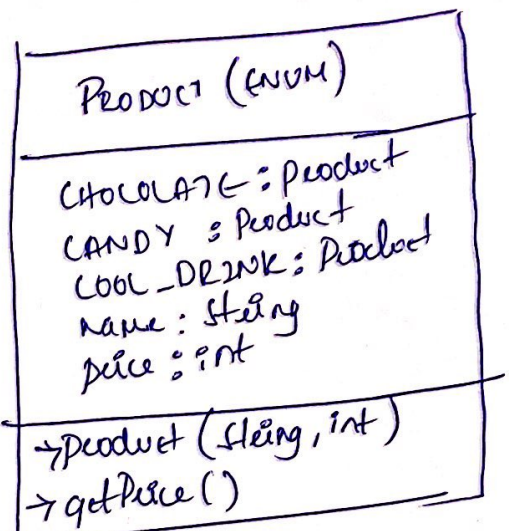 PRODUCT (ENUM)
CHOCOLATE : Product
CANDY : Product
COOL_DRINK : Product
name : String
price : int
→ Product (String, int)
→ getPrice()